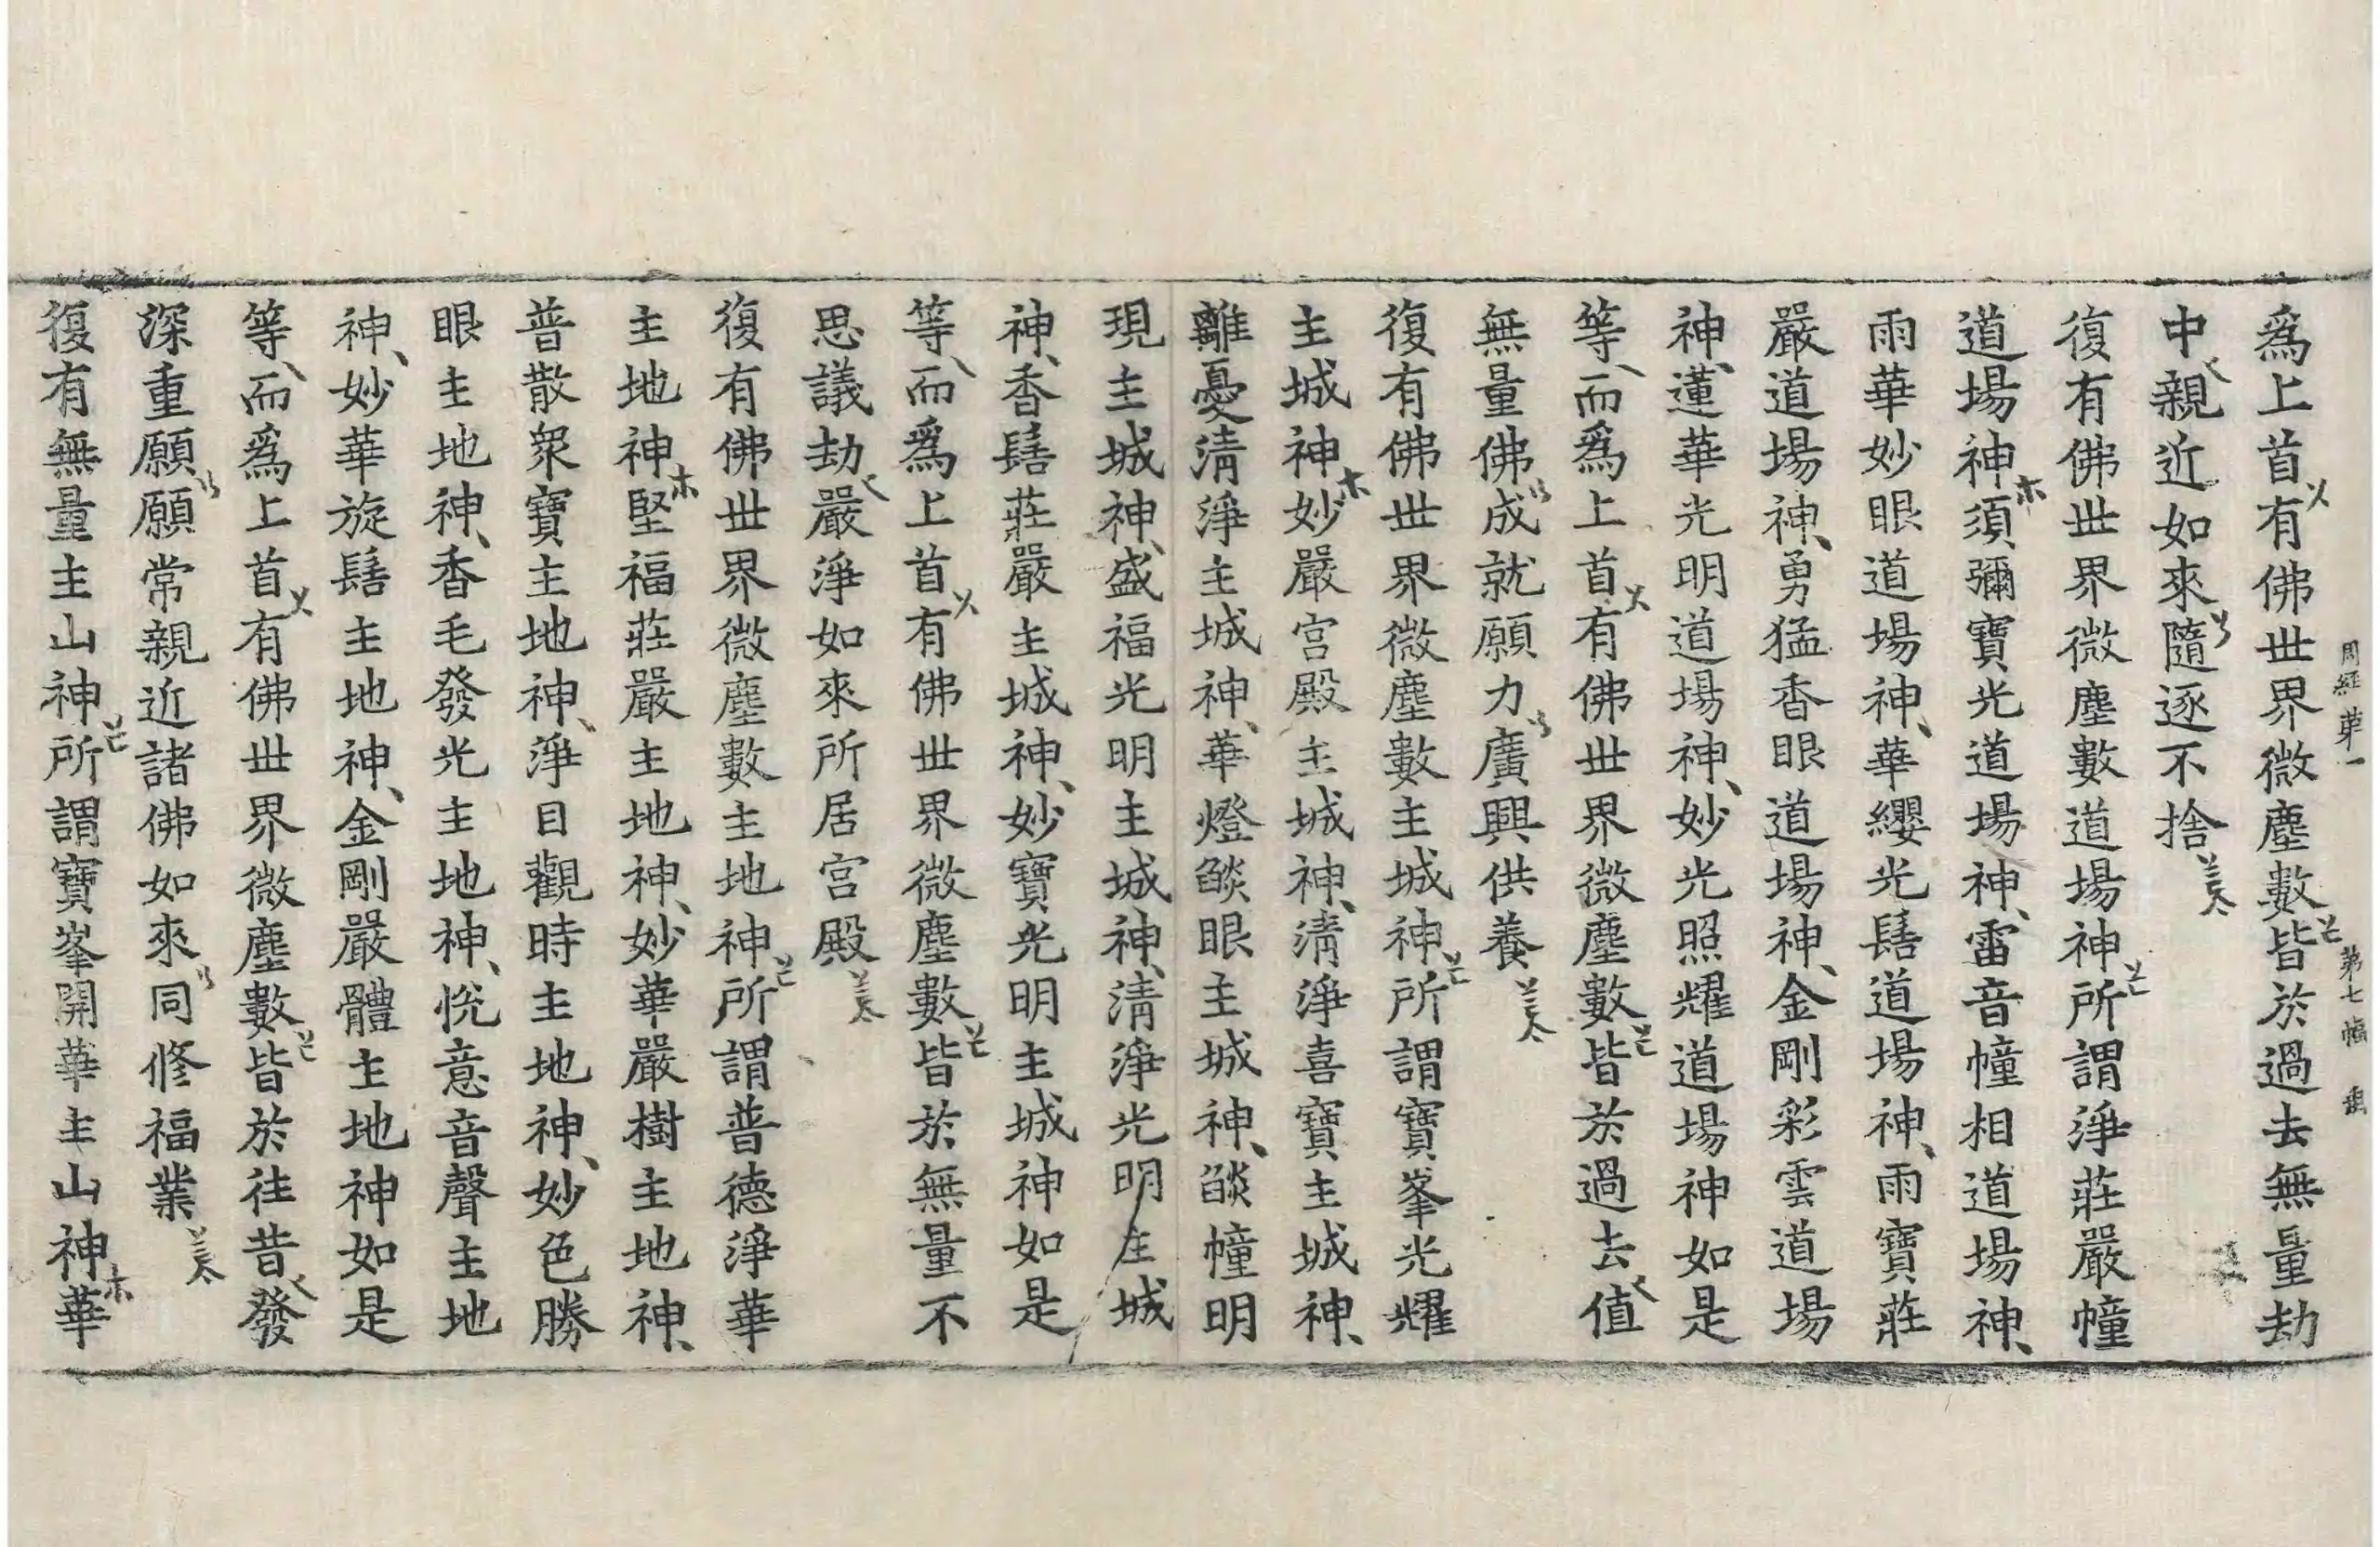 周經第一 第七幅
爲上首有佛世界微塵數皆於過去無量劫
中親近如來隨逐不捨
復有佛世界微塵數道場神所謂淨莊嚴幢
道場神須彌寶光道場神雷音幢相道場神
雨華妙眼道場神華纓光髻道場神雨寶莊
嚴道場神勇猛香眼道場神金剛彩雲道場
神蓮華光明道場神妙光照耀道場神如是
等而爲上首有佛世界微塵數皆於過去值
無量佛成就願力廣興供養
復有佛世界微塵數主城神所謂寶峯光耀
主城神妙嚴宮殿主城神清淨喜寶主城神
離憂清淨主城神華燈燄眼主城神燄幢明
現主城神盛福光明主城神清淨光明主城
神香髻莊嚴主城神妙寶光明主城神如是
等而爲上首有佛世界微塵數皆於無量不
思議劫嚴淨如來所居宮殿
復有佛世界微塵數主地神所謂普德淨華
主地神堅福莊嚴主地神妙華嚴樹主地神
普散衆寶主地神淨目觀時主地神妙色勝
眼主地神香毛發光主地神悅意音聲主地
神妙華旋髻主地神金剛嚴體主地神如是
等而爲上首有佛世界微塵數皆於往昔發
深重願願常親近諸佛如來同修福業
復有無量主山神所謂寶峯開華主山神華